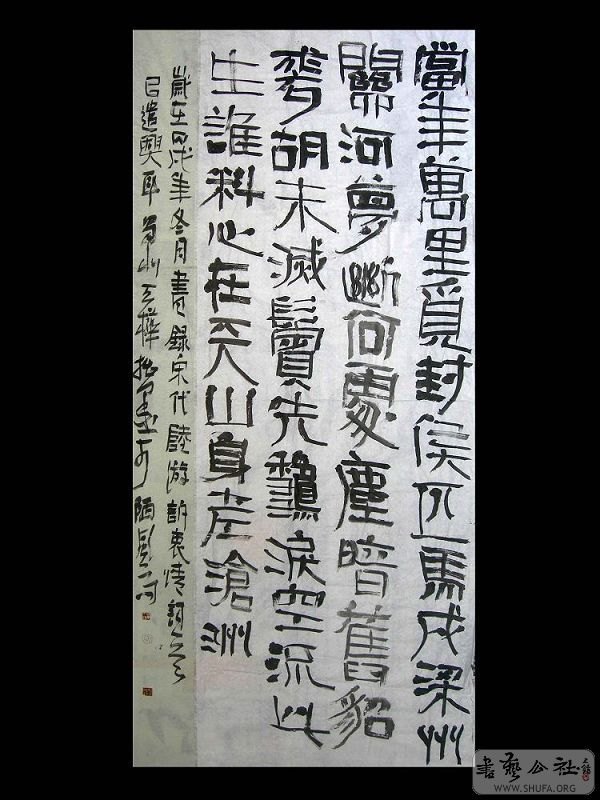 當年萬里覓封侯匹馬戍梁州
關河夢斷何處塵暗舊貂
裘胡未滅鬢先龝淚空流此
生誰料心在天山身老滄洲
歲在年冬月書錄宋代陸游訴衷情詞一首
以遣興耳山王樺拙墨于陋
書藝公社
WWW.SHUFA.ORG